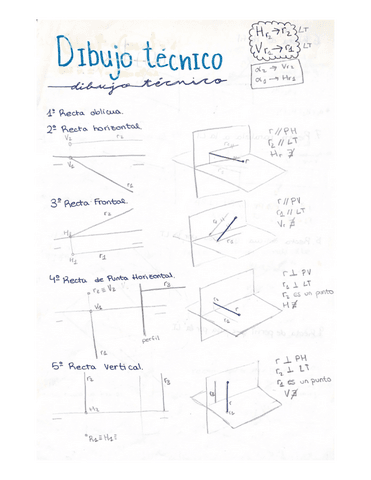 Dibujo técnico
dibujo técnico
Hr₁ → r₂ LT
Vr₂ → r₁ LT
α₂ → Vr₂
α₁ → Hr₁
1º Recta oblicua.
2º Recta horizontal.
V₂ r₂
V₁
r₁
r
r // PH
r₂ // LT
Hr ∄
3º Recta Frontal.
r₂
H₂
H₁ r₁
r₂ r
r₁
r // PV
r₁ // LT
Vr ∄
4º Recta de Punta Horizontal.
r₂ ≡ V₂
r₁
perfil
r
r₁
r ⊥ PV
r₁ ⊥ LT
r₂ es un punto
H ∄
5º Recta Vertical.
r₂ r₃
H₂
r₁ ≡ H₁
r
r ⊥ PH
r₂ ⊥ LT
r₁ es un punto
V ∄